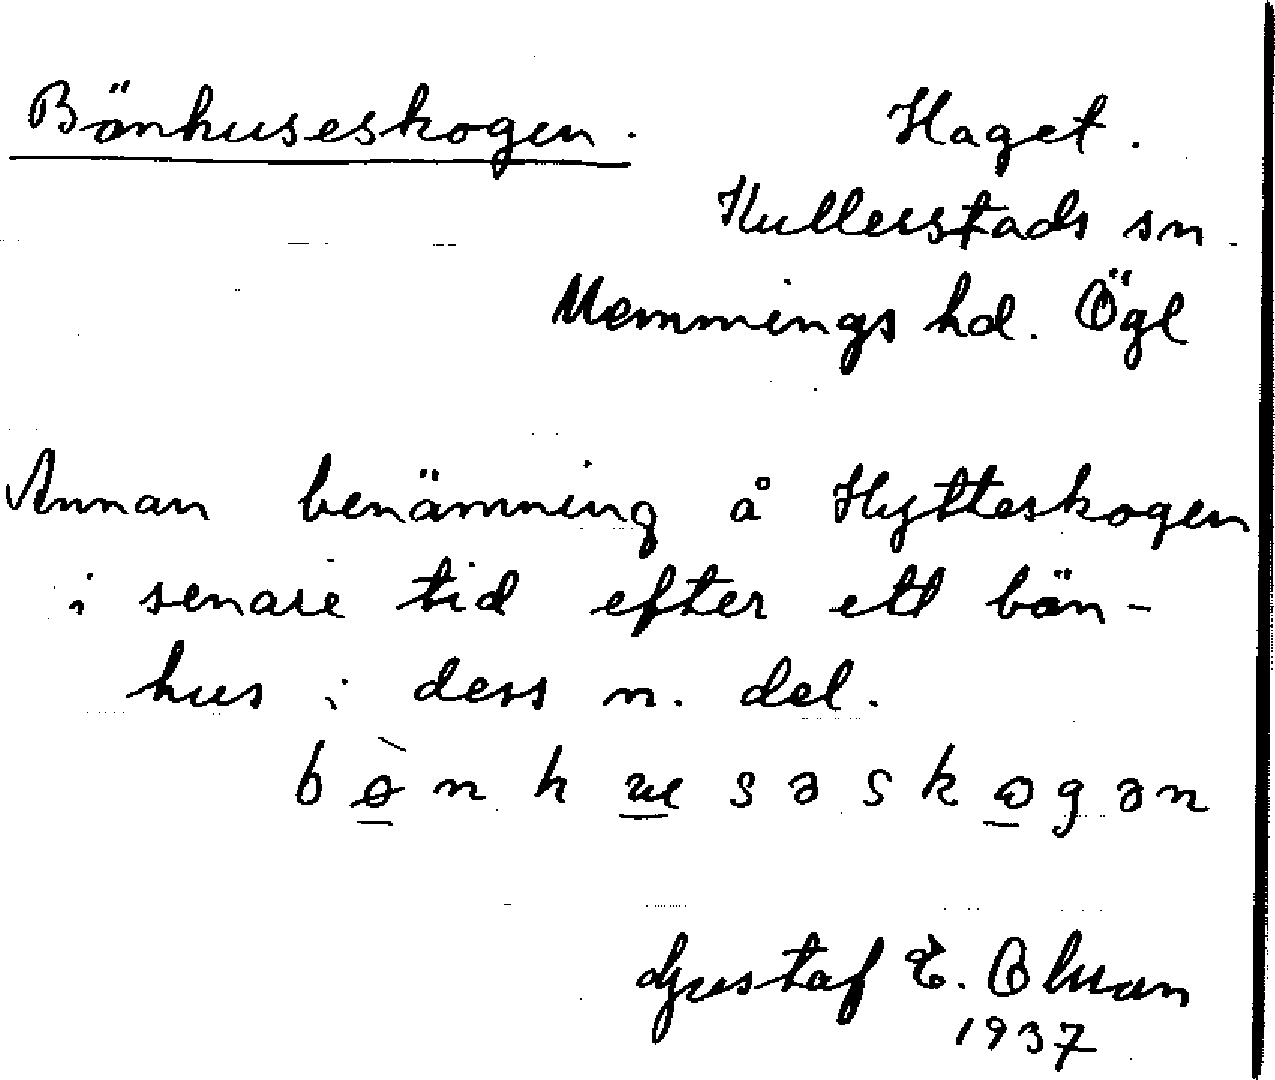 Bönhuseskogen. Haget.
Kullerstads sn.
Memmings hd. Ögl
Annan benämning å Hytteskogen
i senare tid efter ett bön-
hus i dess n. del.
Gustaf E. Olman
1937